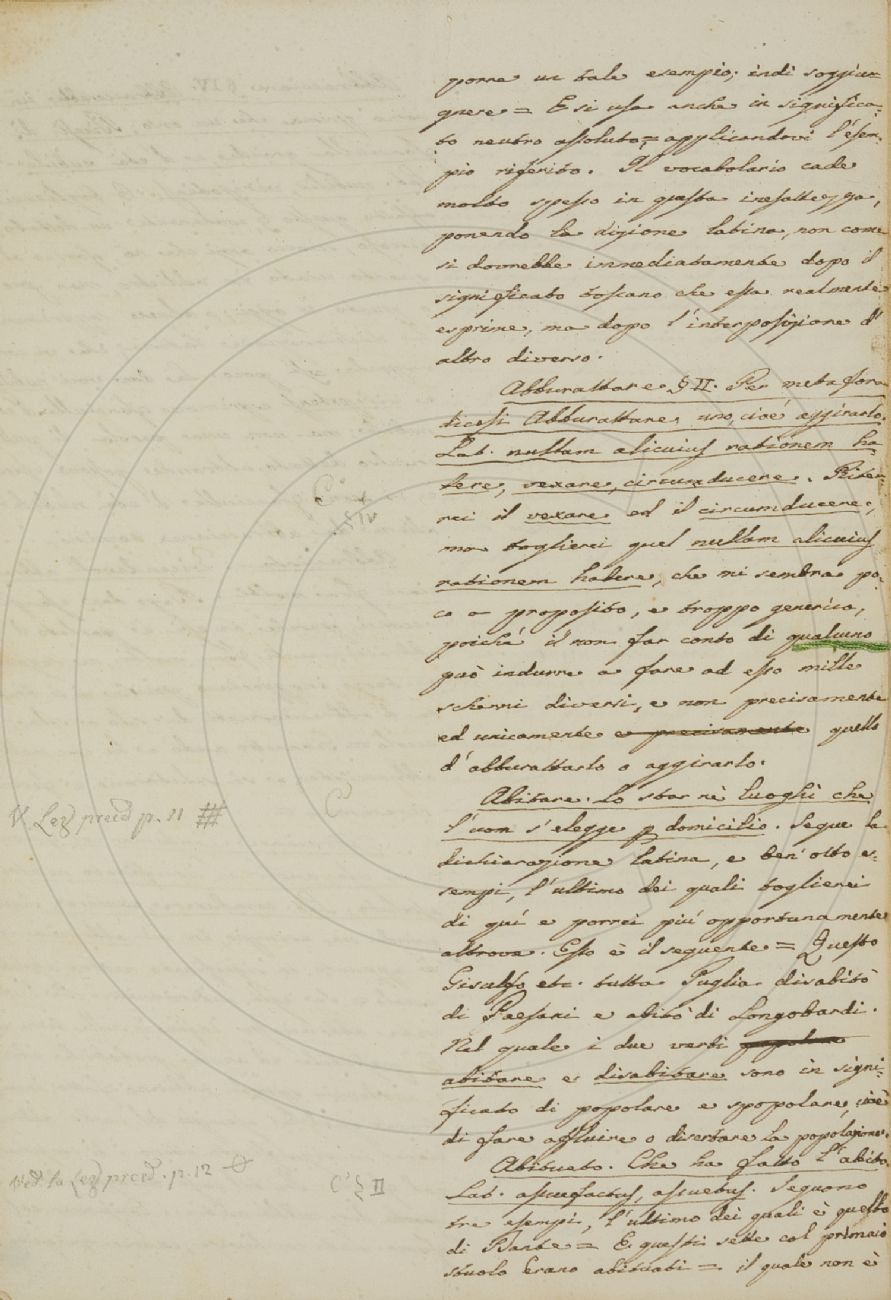 porre un tale esempio; indi soggiun-
gnere = E si usa anche in significa-
to neutro assoluto = applicandovi l'esem-
pio riferito. Il vocabolario cade
molto spesso in questa inesattezza,
ponendo la dizione latina, non come
si dovrebbe immediatamente dopo il
significato toscano che essa realmente
esprime, ma dopo l'interposizione d'
altro diverso.
Abburattare § II. Per metafora
dicesi Abburattare uno, cioè aggirarlo.
Lat. nullam alicuius rationem ha-
bere, vexare, circumducere. Riter-
rei il vexare ed il circumducere,
ma toglierei quel nullam alicuius
rationem habere, che mi sembra po-
co a proposito, e troppo generico,
poiché il non far conto di qualcuno
può indurre a fare ad esso mille
scherni diversi, e non precisamente
ed unicamente e precisamente quello
d'abburattarlo o aggirarlo.
Abitare. Lo star nè luoghi che
l'uom s'elegge p domicilio. Segue la
dichiarazione latina, e ben otto es-
sempi, l'ultimo dei quali toglierei
di quí e porrei piú opportunamente
altrove. Esso è il seguente = Questo
Gisulfo etc. tutta Puglia disabitò
di Paesani e abitò di Longobardi.
Nel quale i due verbi popolare
abitare e disabitare sono in signi-
ficato di popolare e spopolare, cioè
di fare affluire o disertare la popolazione.
Abituato. Che ha fatto l'abito
Lat. assuefactus, assuetus. Seguono
tre esempi, l'ultimo dei quali è quello
di Dante = E questi sette col primaio
stuolo Erano abituati = il quale non è
C
§ IV
V. Lez preced p. 11 #
C
Ved. la Lez preced. p. 12
C § II